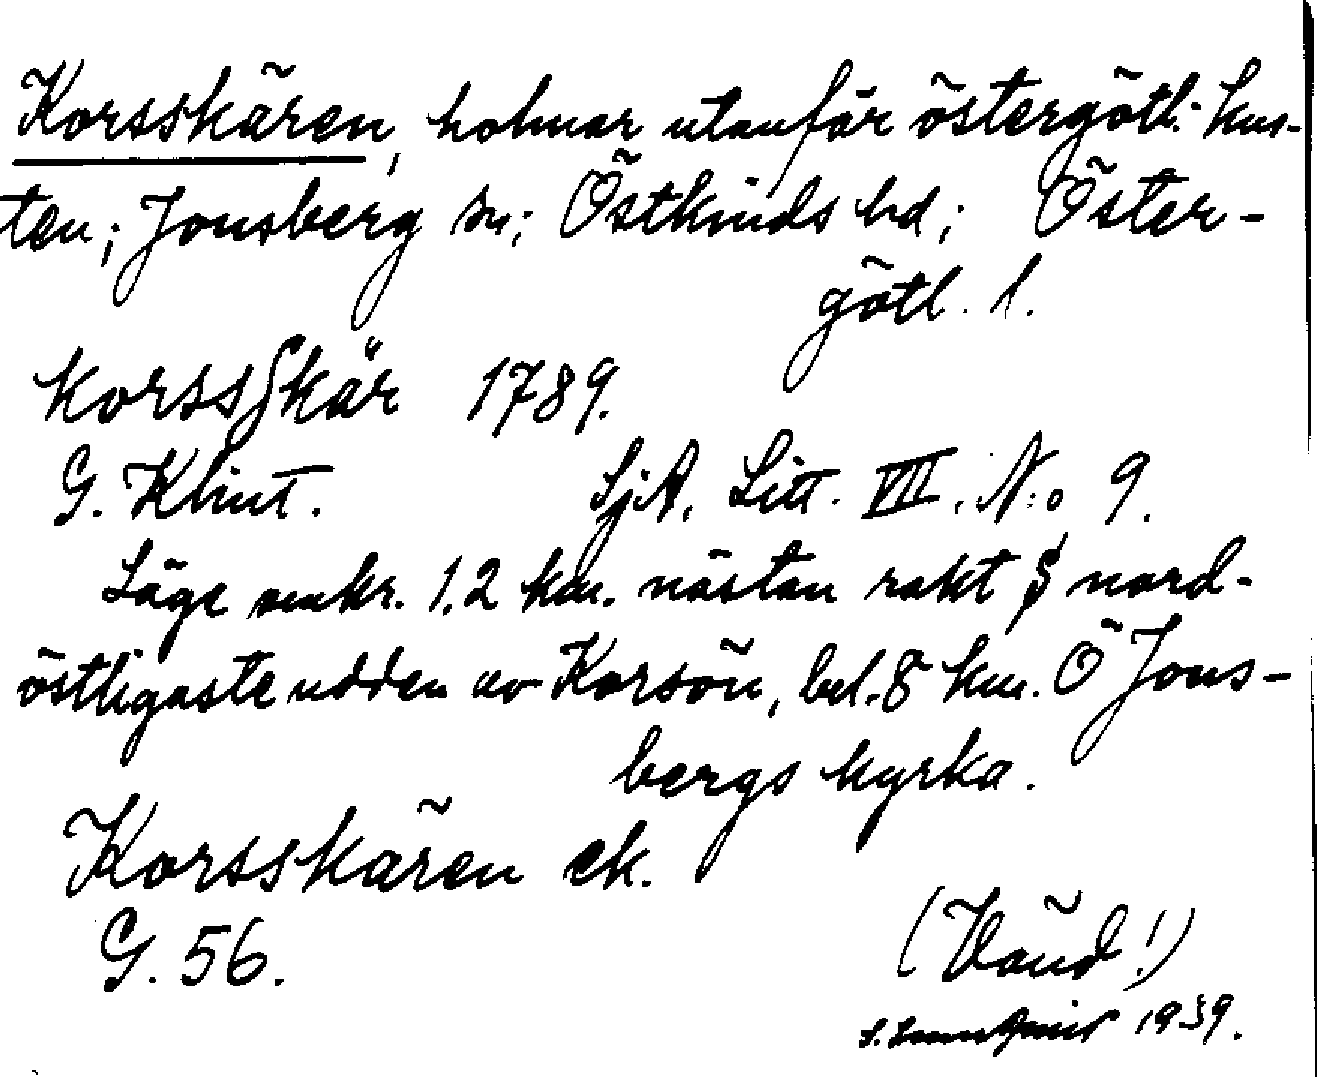 Korsskären, holmar utanför östergötl. kus-
ten; Jonsberg sn; Östkinds hd; Öster-
götl. l.
KorssSkär 1789.
G. Klint. SjA. Litt. VII. N:o 9.
Läge omkr. 1,2 km. nästan rakt S nord-
östligaste udden av Korsön, bel. 8 km. Ö Jons-
bergs kyrka.
Korsskären ek.
G. 56.
(Vänd!)
1939.